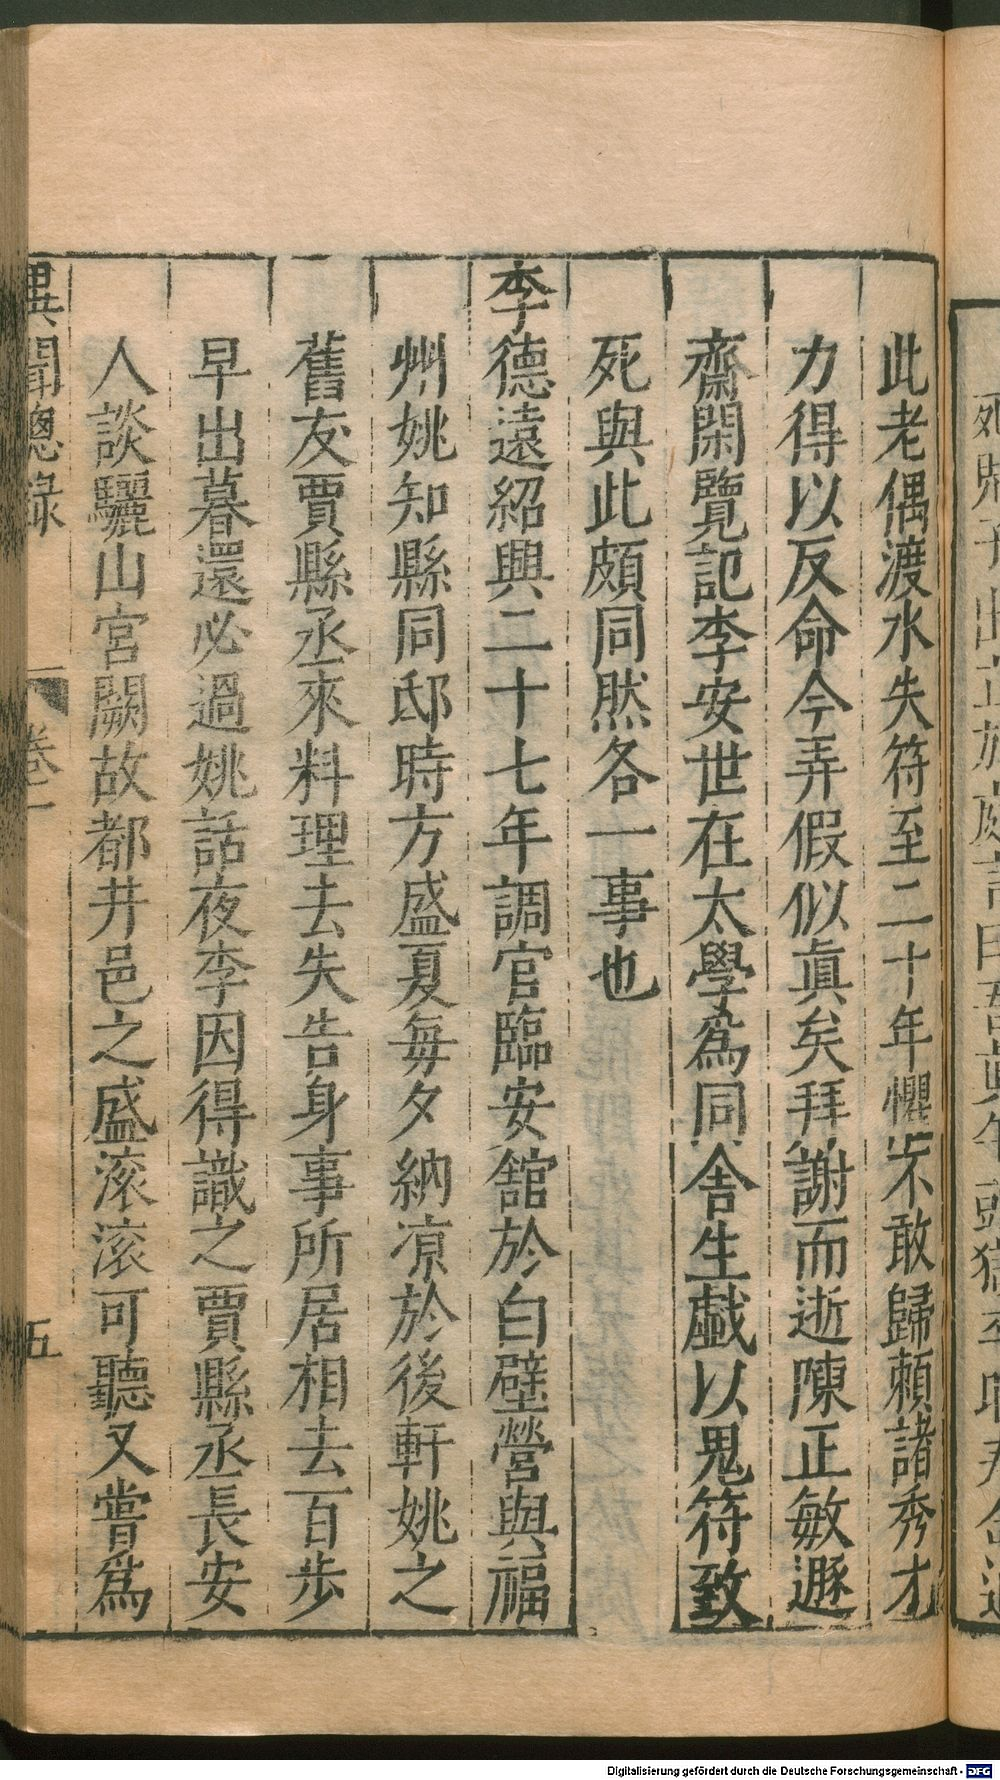 此老偶渡水失符至二十年懼不敢歸賴諸秀才
力得以反命今弄假似眞矣拜謝而逝陳正敏遯
齋閑覽記李安世在太學爲同舍生戱以鬼符致
死與此頗同然各一事也
李德遠紹興二十七年調官臨安舘於白壁營與福
州姚知縣同邸時方盛夏毎夕納凉於後軒姚之
舊友賈縣丞來料理去失告身事所居相去百步
早出暮還必過姚話夜李因得識之賈縣丞長安
人談驪山宮闕故都井邑之盛滚滚可聽又嘗爲
異聞總錄
卷一
五
Digitalisierung gefördert durch die Deutsche Forschungsgemeinschaft - DFG